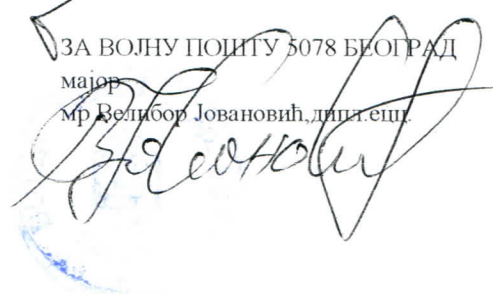 ЗА ВОЈНУ ПОШТУ 5078 БЕОГРАД
мајор
мр Велибор Јовановић,дипл.ецц.